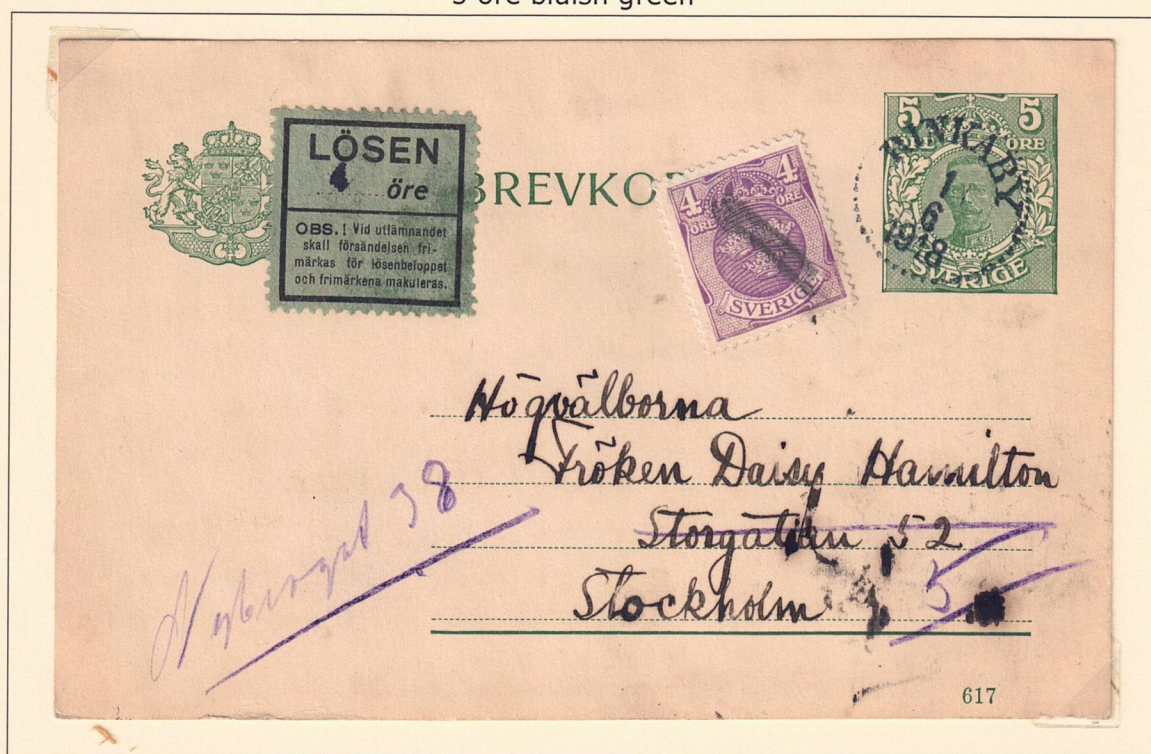 5 öre bluish green
BREVKOR
LÖSEN
4 öre
OBS.! Vid utlämnandet
skall försändelsen fri-
märkas för lösenbeloppet
och frimärkena makuleras.
4 4
ÖRE ÖRE
SVERIGE
5 5
ÖRE
SVERIGE
RINKABY
1
6
1918
Högvälborna
Fröken Daisy Hamilton
Storgatan 52
Stockholm
5
38
617